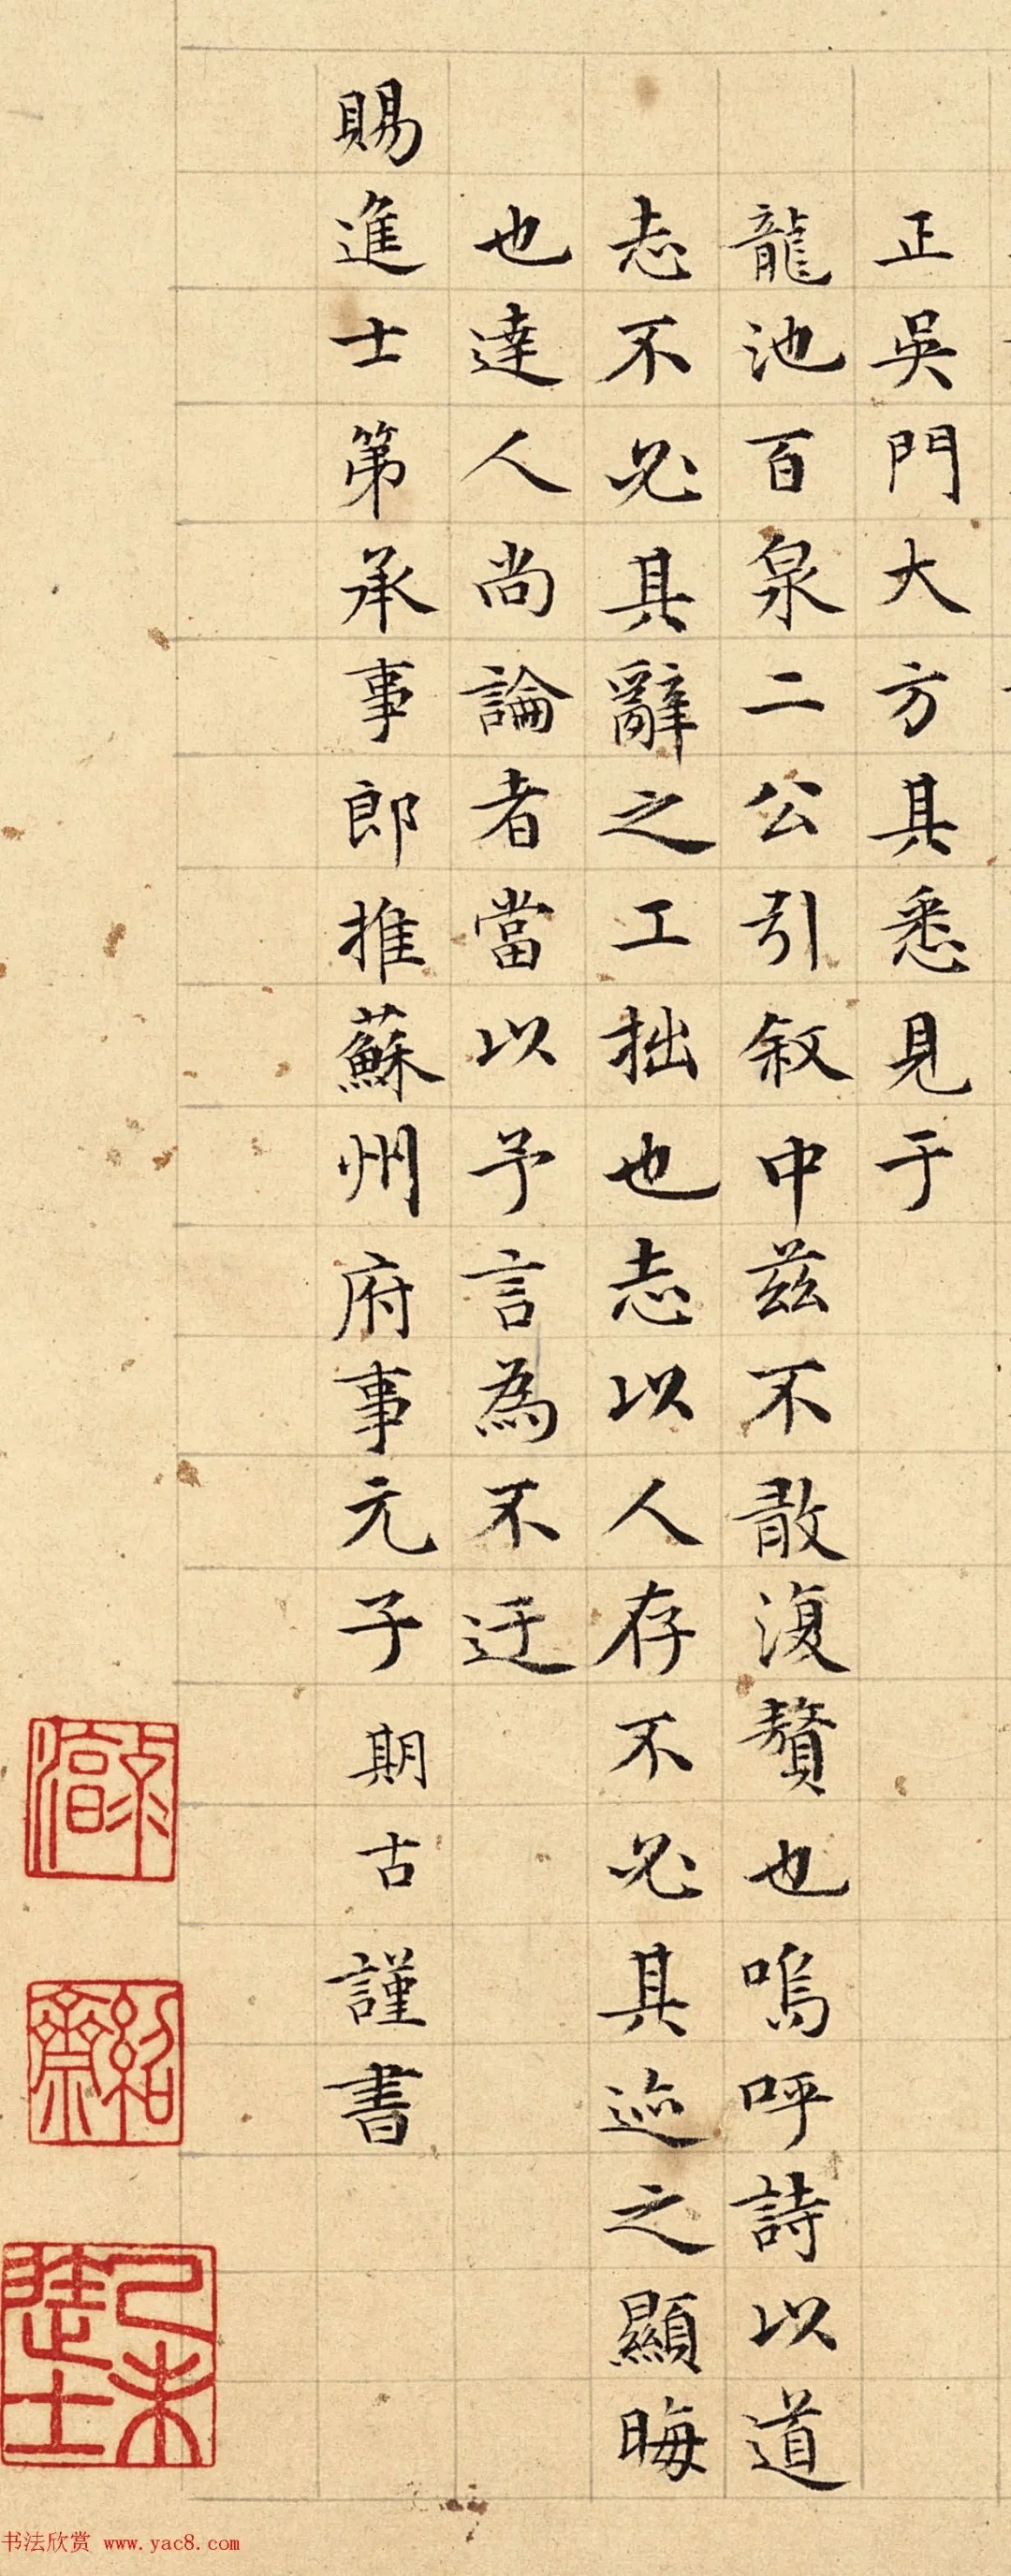 正吳門大方具悉見于
龍池百泉二公引敘中茲不敢復贅也嗚呼詩以道
志不必具辭之工拙也志以人存不必具迹之顯晦
也達人尚論者當以予言為不迂
賜進士第承事郎推蘇州府事元子期古謹書
己未進士
书法欣赏 www.yac8.com